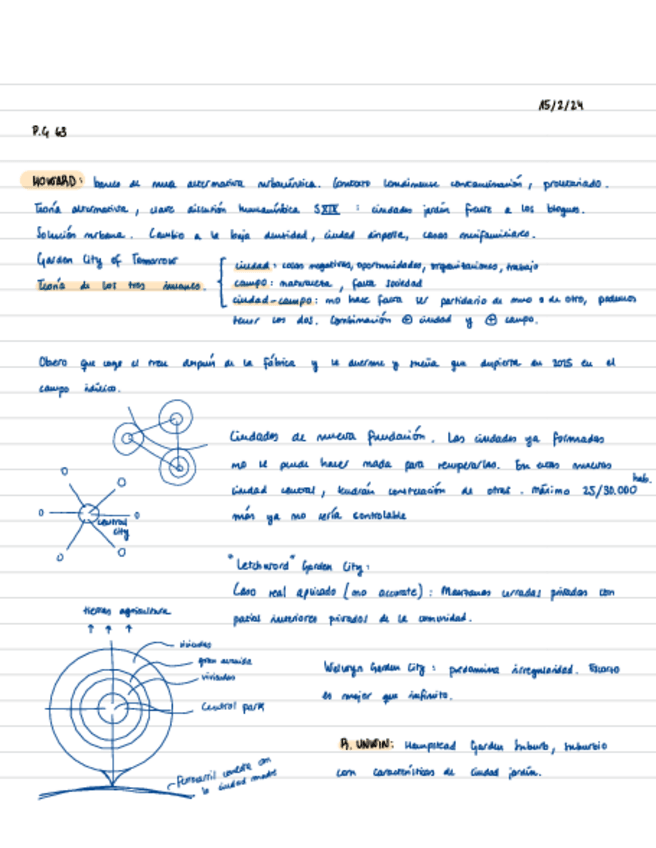 15/2/24
P.G 63
HOWARD: busca de nueva alternativa urbanística. Contexto londinense contaminación, proletariado.
Teoría alternativa, clave discusión humanística SXIX : ciudades jardín frente a los bloques.
Solución urbana. Cambio a la baja densidad, ciudad dispersa, casas unifamiliares.
Garden City of Tomorrow
Teoría de los tres imanes.
ciudad: cosas negativas, oportunidades, organizaciones, trabajo
campo: naturaleza, falta sociedad
ciudad-campo: no hace falta ser partidario de uno o de otro, podemos
tener los dos. Combinación ⊕ ciudad y ⊕ campo.
Obrero que coge el tren después de la fábrica y se duerme y sueña que despierta en 2025 en el
campo idílico.
Ciudades de nueva fundación. Las ciudades ya formadas
no se puede hacer nada para recuperarlas. En estas nuevas
ciudad central, tendrán constelación de otras. Máximo 25/30.000 hab.
más ya no sería controlable
central
city
"Letchword" Garden City:
Caso real aplicado (no accurate): Manzanas cerradas privadas con
patios interiores privados de la comunidad.
tierras agricultura
viviendas
gran avenida
viviendas
Central park
Ferrocarril conecta con
la ciudad madre
Welwyn Garden City: predomina irregularidad. Escaso
es mejor que infinito.
R. UNWIN: Hampstead Garden Suburb, suburbio
con características de ciudad jardín.